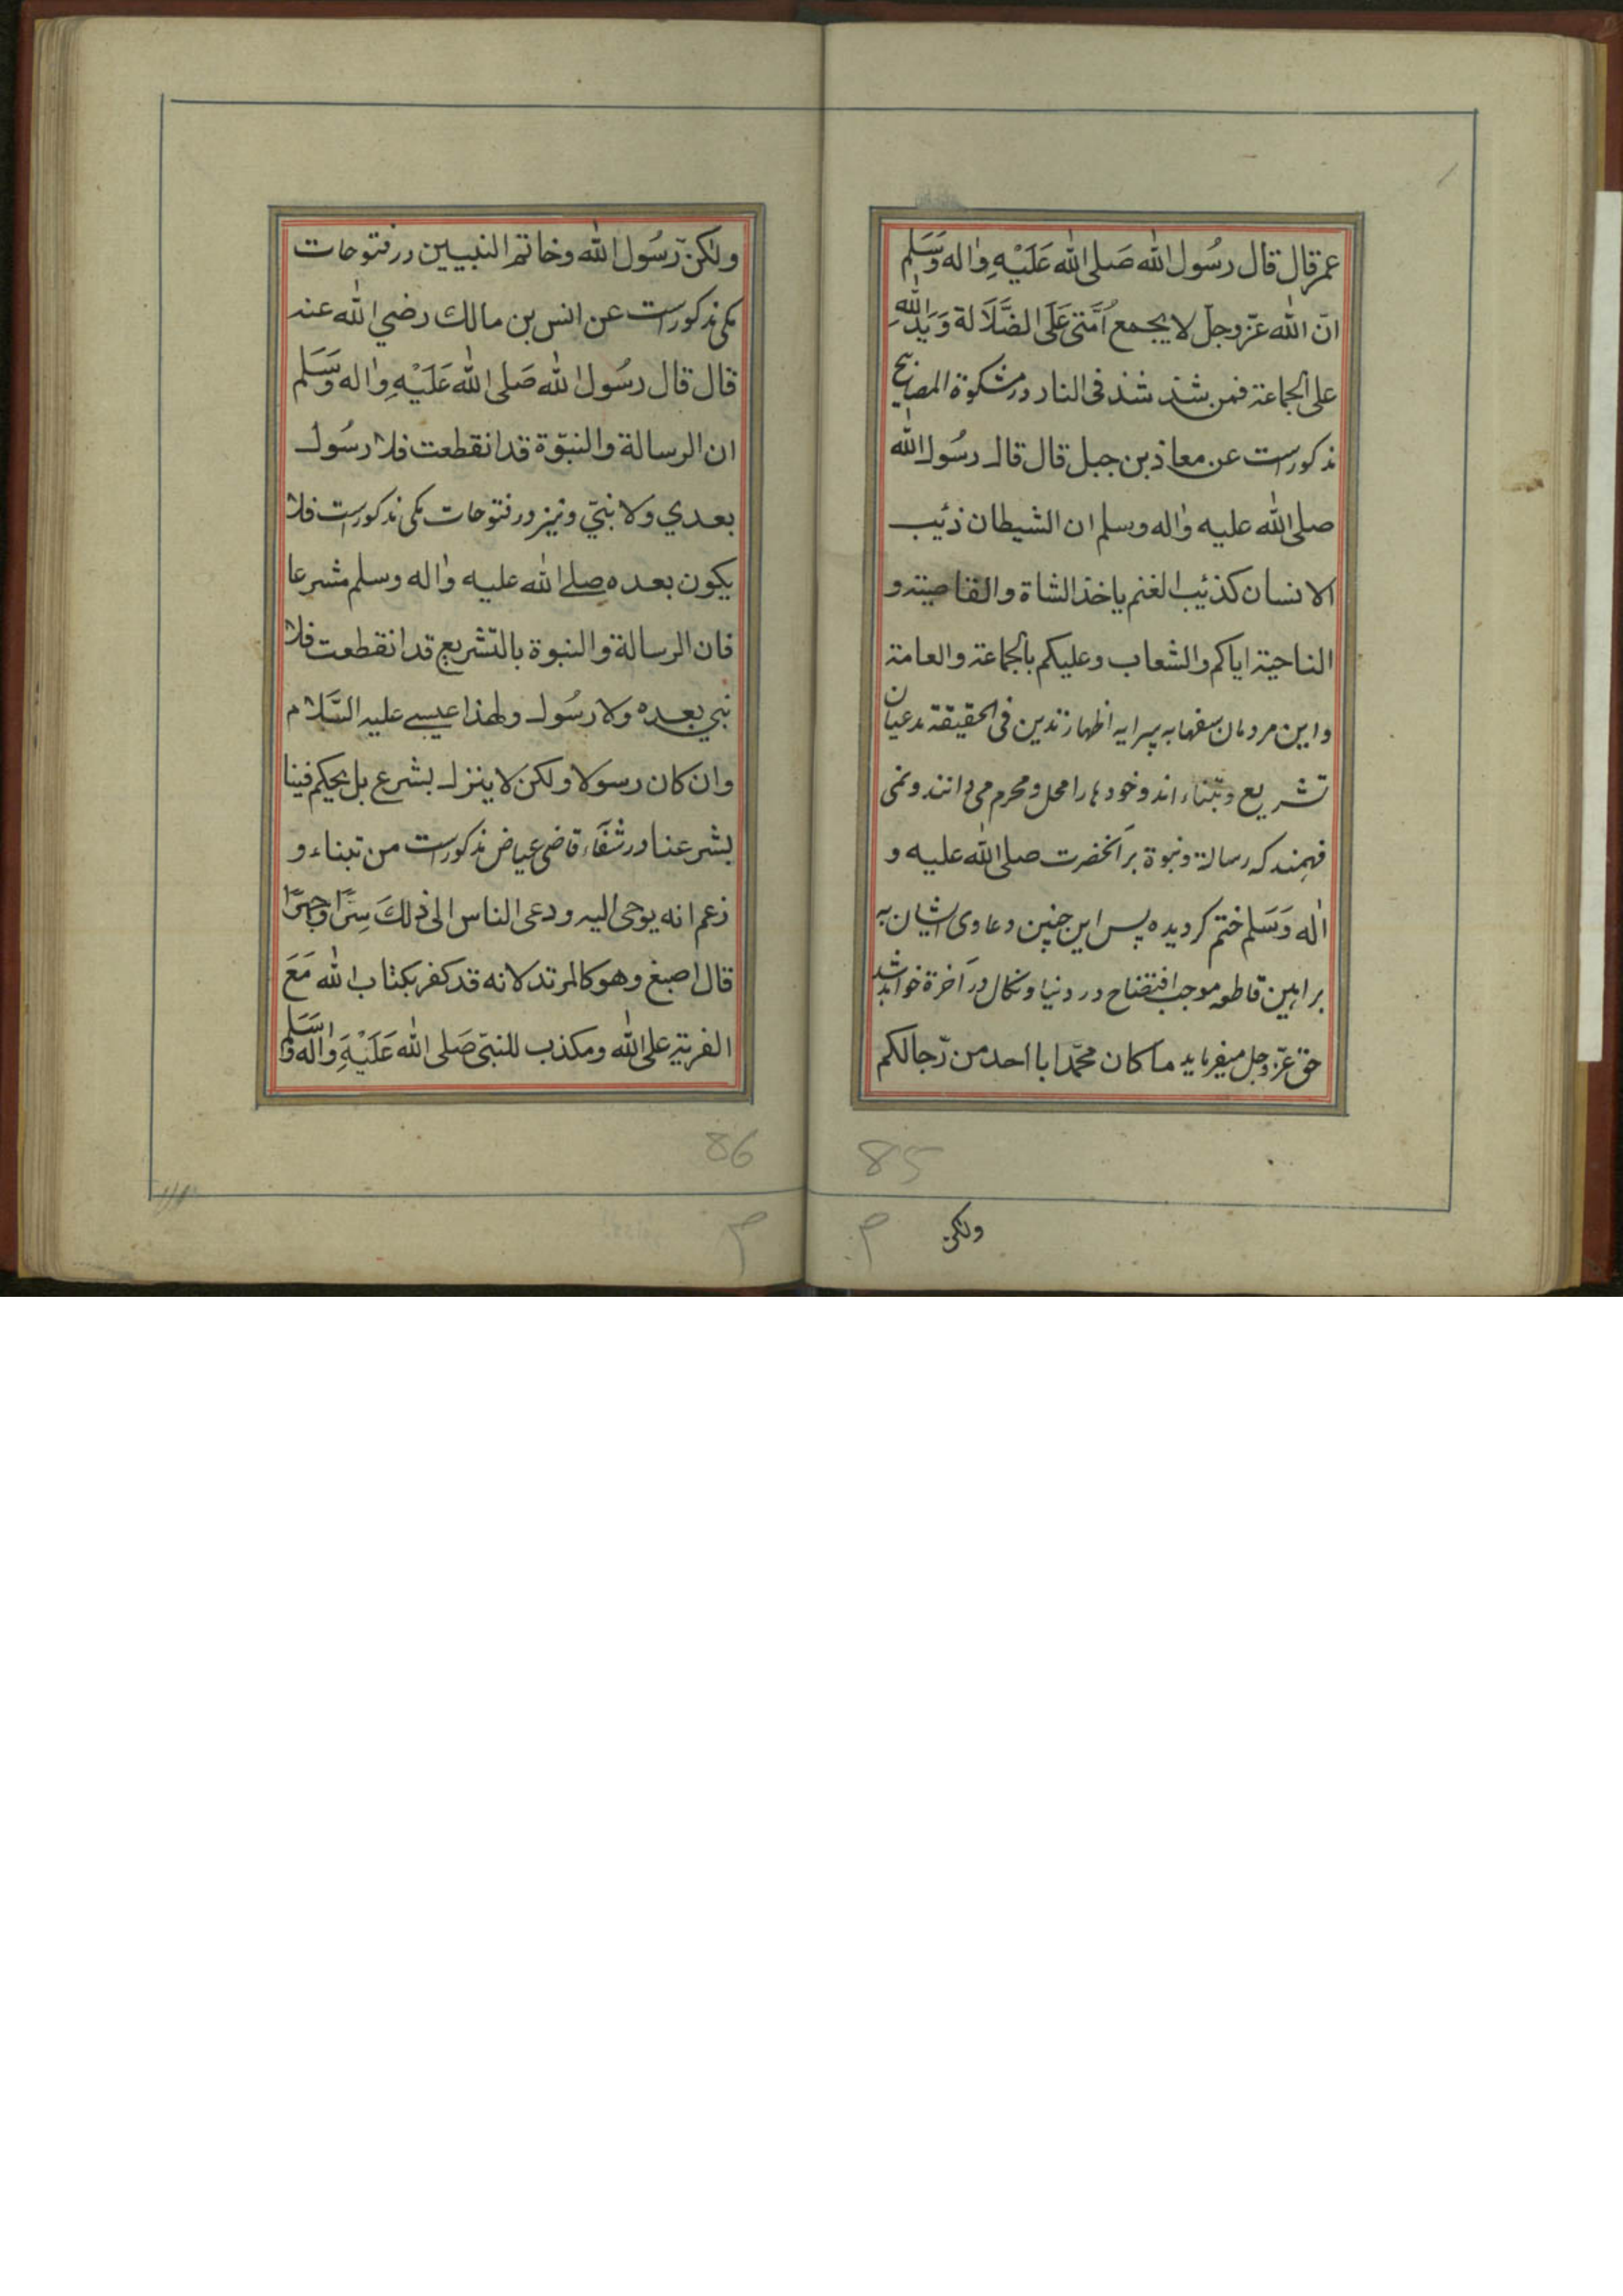 عمر قال قال رسُول الله صَلی الله عَلَیْهِ واٰله وَسَلم
انّ الله عزّ وجلّ لا یجمع اُمَّتی عَلَی الضَّلَالة وَیَد اللهِ
علی الجماعة فمن شذ شذ فی النار در مشکوة المصابیح
مذکور است عن معاذ بن جبل قال قال رسُول الله
صلی الله علیه واٰله وسلم ان الشیطان ذئب
الانسان کذئب الغنم یاخذ الشاة والقاصیة و
الناحیة ایاکم والشعاب وعلیکم بالجماعة والعامة
و این مردمان سفها به پیرایه اظهار تدین فی الحقیقة مدعیان
تشریع و تبناء اند و خودها را محل و محرم می دانند و نمی
فهمند که رسالة و نبوة بر آنخضرت صلی الله علیه و
اٰله وَسَلم ختم کردیده پس این چنین دعاوی ایشان به
براهین قاطعه موجب افتضاح در دنیا و نکال در آخرة خواهد شد
حق عزّ وجل میفرماید ما کان محمّد ابا احد من رّجالکم
85
ولکن
ولٰکن رّسُول الله وخاتم النبیین در فتوحات
مکی مذکور است عن انس بن مالك رضي الله عنه
قال قال رسُول الله صَلی الله عَلَیْهِ واٰله وَسَلم
ان الرسالة والنبوّة قد انقطعت فلا رسُول
بعدي ولا نبيّ و نیز در فتوحات مکی مذکور است فلا
یکون بعده صلے الله علیه واٰله وسلم مشرعا
فان الرسالة والنبوة بالتّشریع قد انقطعت فلا
نبي بعده ولا رسُول ولهذا عیسے علیه السَّلام
وان کان رسولا ولکن لا ینزل بشرع بل یحکم فینا
بشرعنا در شفَآء قاضی عیاض مذکور است من تبناء و
زعم انه یوحی الیه ودعی الناس الی ذلكَ سِرًّا وجهرًا
قال اصبغ وهو کالمرتد لانه قد کفر بکتاب الله مَعَ
الفریة علی الله ومکذب للنبيّ صَلی الله عَلَیْهِ واٰله وَسَلم
86